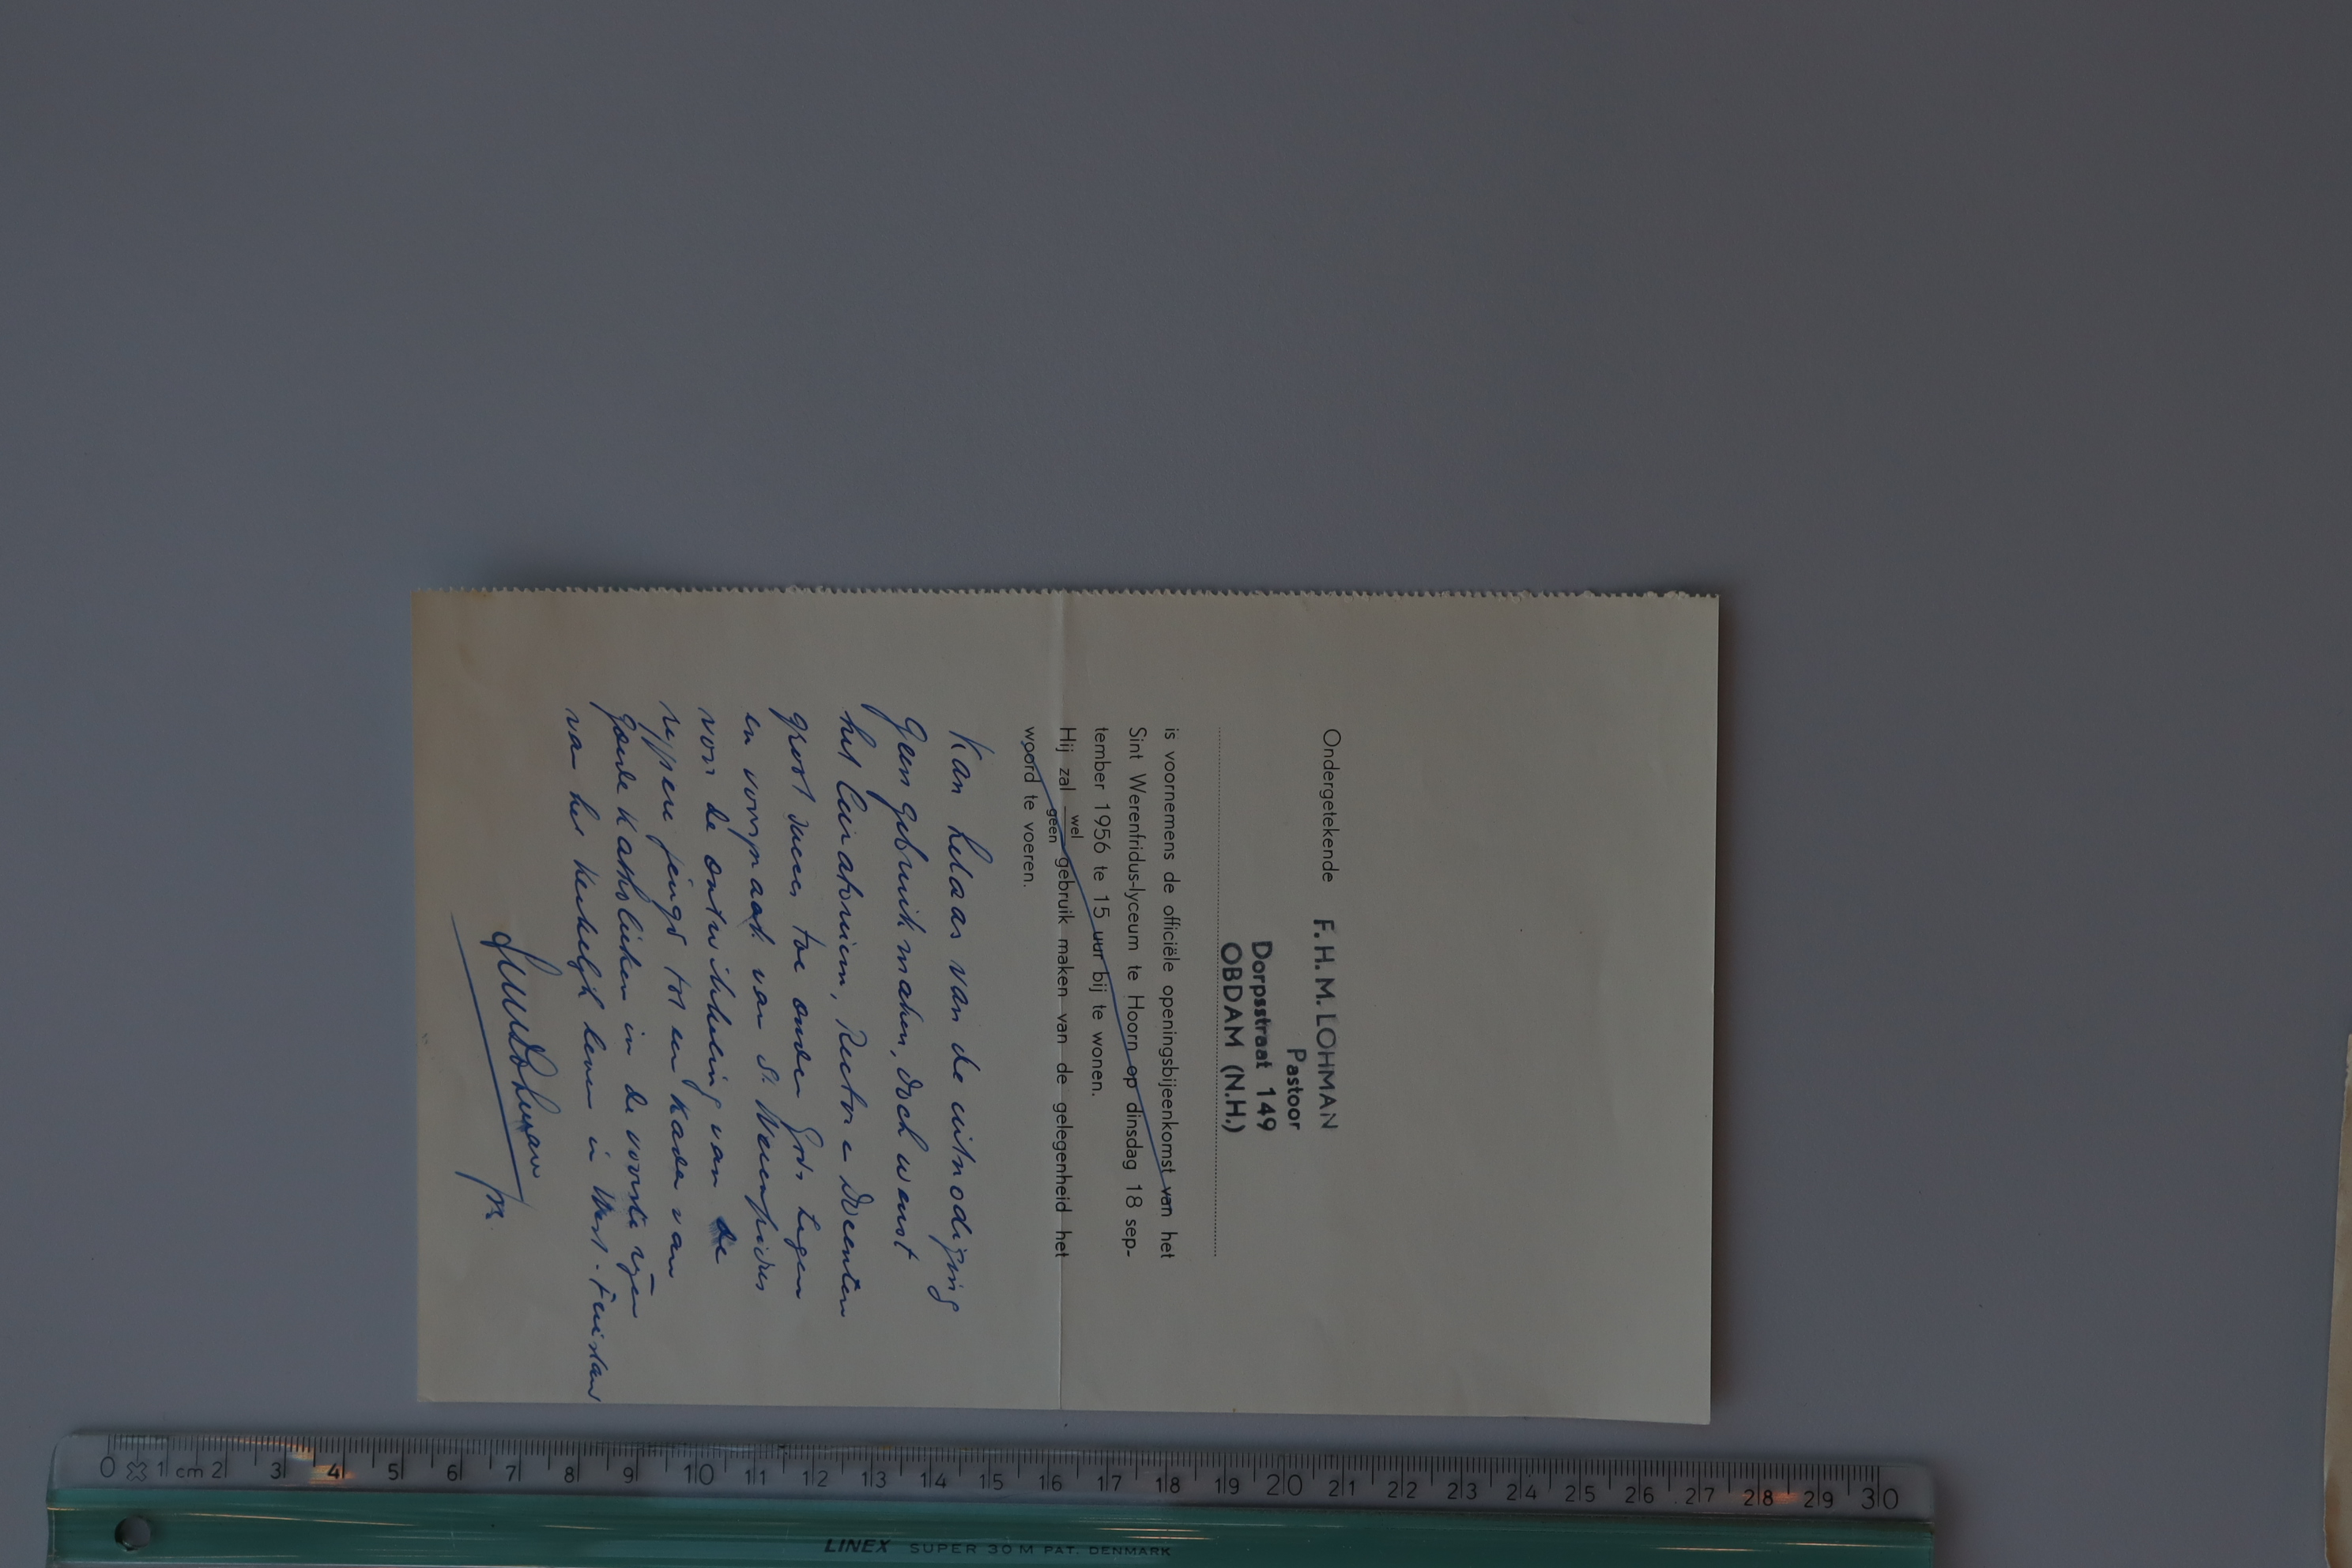 Ondergetekende F. H. M. LOHMAN
Pastoor
Dorpsstraat 149
OBDAM (N.H.)
is voornemens de officiële openingsbijeenkomst van het
Sint Werenfridus-lyceum te Hoorn op dinsdag 18 sep-
tember 1956 te 15 uur bij te wonen.
Hij zal wel
geen gebruik maken van de gelegenheid het
woord te voeren.
Kan helaas van de uitnodiging
geen gebruik maken, doch wenst
het Curatorium, Rector e Docenten
groot succes toe onder Gods zegen
en voorspraak van St. Werenfridus
voor de ontwikkeling van de
rijpere jeugd tot een kader van
goede Katholieken in de voorste rijen
van het kerkelijk leven in West-Friesland
FHMLohman
pr.
0 1 cm 2 3 4 5 6 7 8 9 10 11 12 13 14 15 16 17 18 19 20 21 22 23 24 25 26 27 28 29 30
LINEX SUPER 30 M PAT. DENMARK